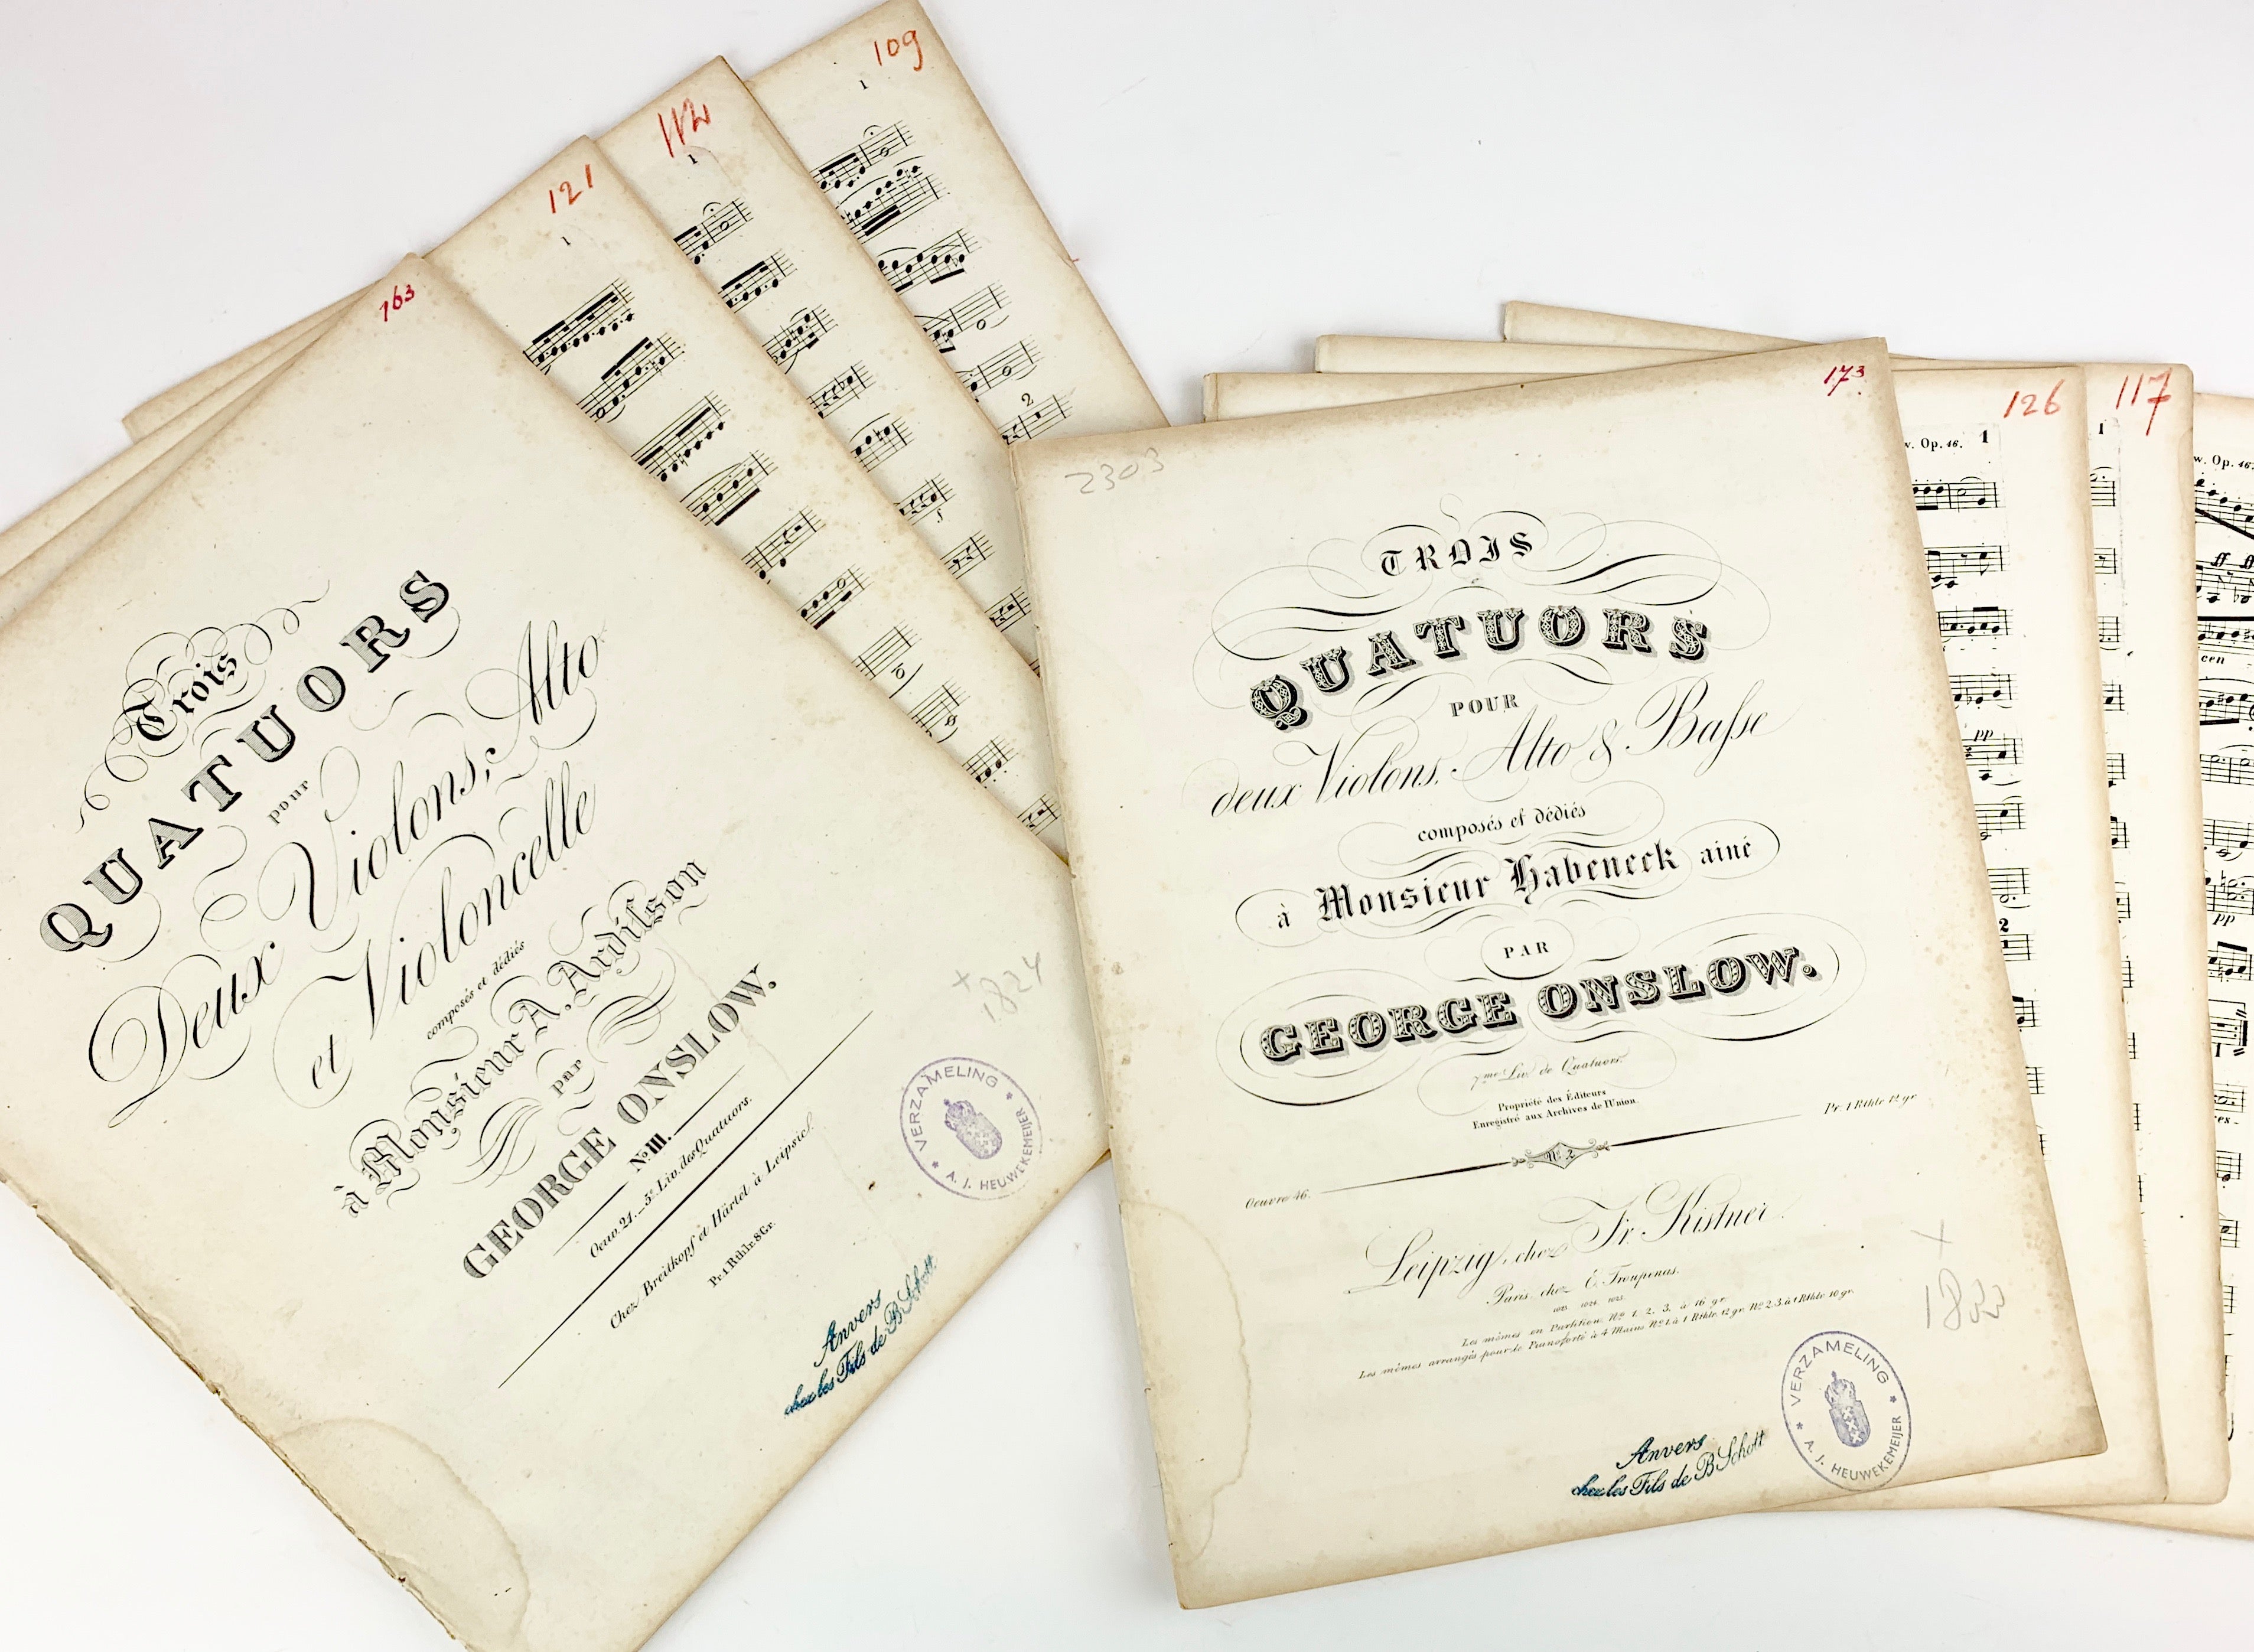 109
1
112
1
121
1
163
Trois
QUATUORS
pour
Deux Violons, Alto
et Violoncelle
composés et dédiés
à Monsieur A. Ardisson
par
GEORGE ONSLOW.
No. III.
Oeuv. 21. 5e. Liv. des Quatuors.
Chez Breitkopf et Härtel à Leipsic.
Pr. 1 Rthlr. 8 Gr.
1824
VERZAMELING
A. J. HEUWEKEMEIJER
Anvers
chez les Fils de B Schott
2
173
2303
TROIS
QUATUORS
POUR
deux Violons, Alto & Basse
composés et dédiés
à Monsieur Habeneck ainé
PAR
GEORGE ONSLOW.
7me Liv. de Quatuors.
Propriété des Éditeurs
Enregistré aux Archives de l'Union.
Pr. 1 Rthlr. 12 gr.
No. 2
Oeuvre 46.
Leipzig, chez Fr. Kistner.
Paris, chez E. Troupenas.
Les mêmes en Partition No. 1. 2. 3. à 16 gr.
Les mêmes arrangés pour le Pianoforté à 4 Mains No. 1 à 1 Rthlr. 12 gr. No. 2. 3. à 1 Rthlr. 10 gr.
VERZAMELING
A. J. HEUWEKEMEIJER
Anvers
chez les Fils de B Schott
126
w. Op. 46. 1
pp
2
117
1
w. Op. 46.
ff ff
cen
pp